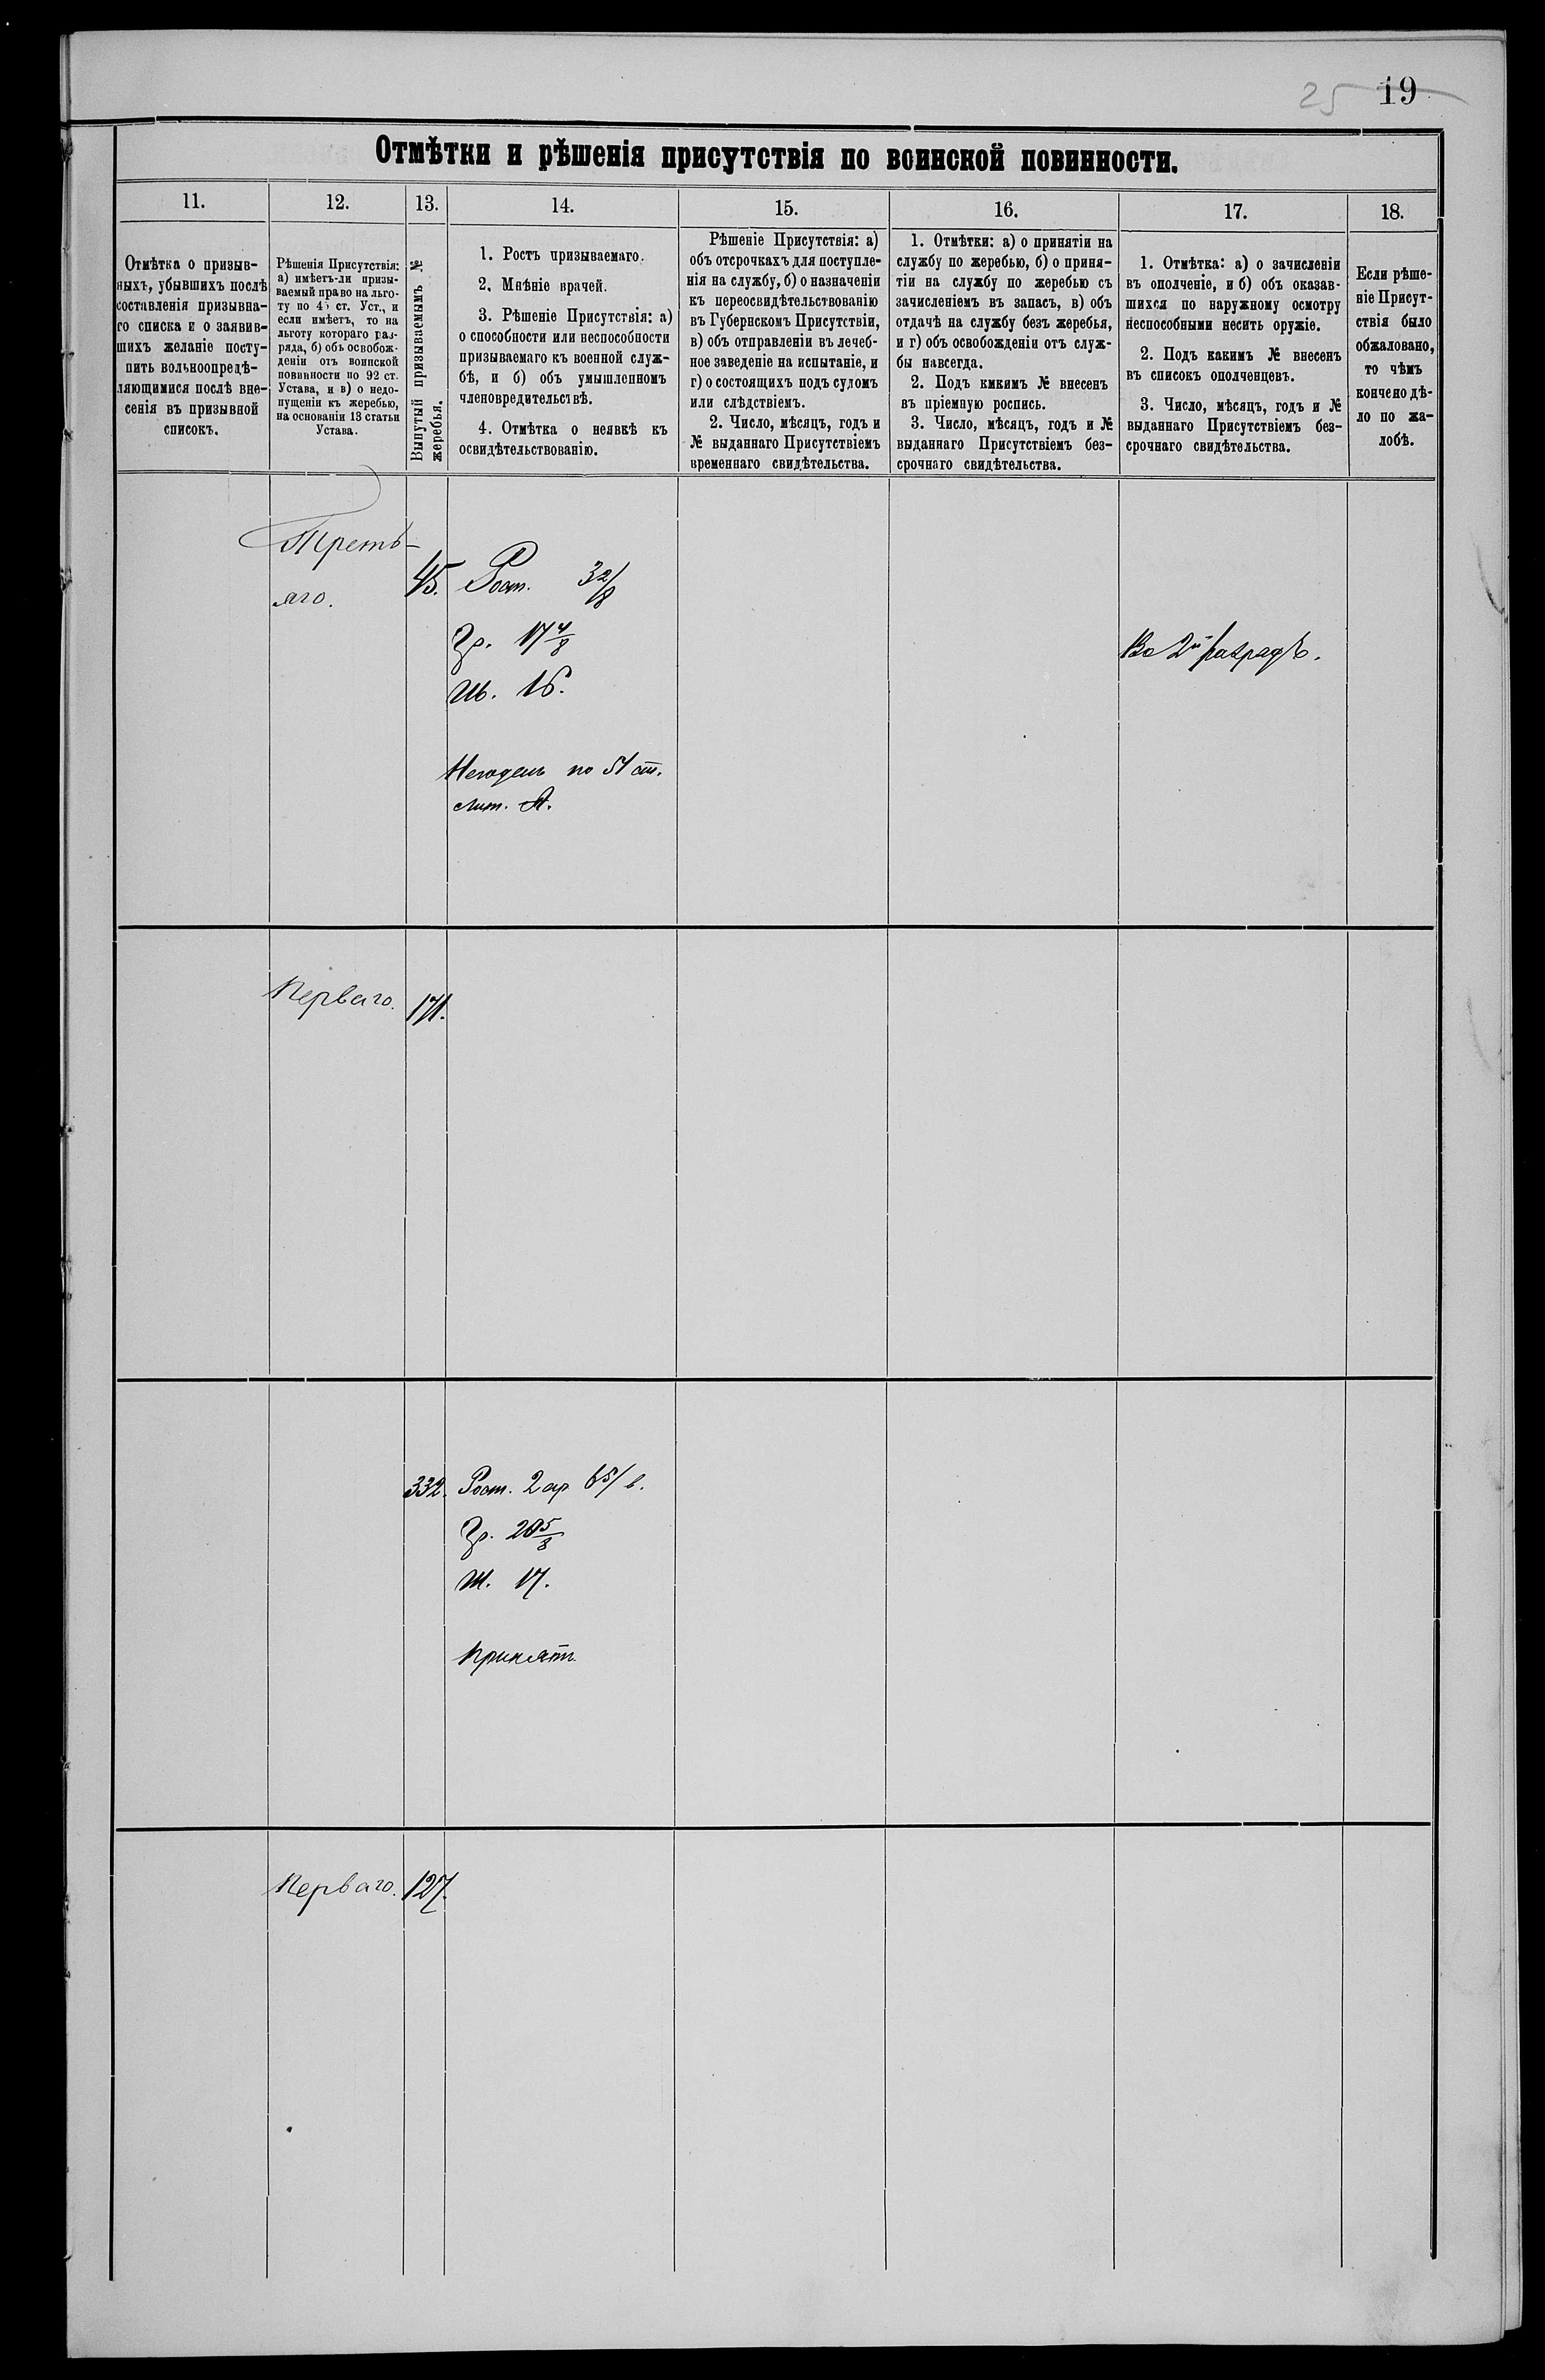 25 19
Отмѣтки и рѣшенія присутствія по воинской повинности.
11.
12.
13.
14.
15.
16.
17.
18.
Отмѣтка о призыв-
ныхъ, убывшихъ послѣ
составленія призывна-
го списка и о заявив-
шихъ желаніе посту-
пить вольноопредѣ-
ляющимися послѣ вне-
сенія въ призывной
списокъ.
Рѣшенія Присутствія:
а) имѣетъ-ли призы-
ваемый право на льго-
ту по 45 ст. Уст., и
если имѣетъ, то на
льготу котораго раз-
ряда, б) объ освобож-
деніи отъ воинской
повинности по 92 ст.
Устава, и в) о недо-
пущеніи къ жеребью,
на основаніи 13 статьи
Устава.
Вынутый призываемымъ №
жеребья.
1. Ростъ призываемаго.
2. Мнѣніе врачей.
3. Рѣшеніе Присутствія: а)
о способности или неспособности
призываемаго къ военной служ-
бѣ, и б) объ умышленномъ
членовредительствѣ.
4. Отмѣтка о неявкѣ къ
освидѣтельствованію.
Рѣшеніе Присутствія: а)
объ отсрочкахъ для поступле-
нія на службу, б) о назначеніи
къ переосвидѣтельствованію
въ Губернскомъ Присутствіи,
в) объ отправленіи въ лечеб-
ное заведеніе на испытаніе, и
г) о состоящихъ подъ судомъ
или слѣдствіемъ.
2. Число, мѣсяцъ, годъ и
№ выданнаго Присутствіемъ
временнаго свидѣтельства.
1. Отмѣтки: а) о принятіи на
службу по жеребью, б) о приня-
тіи на службу по жеребью съ
зачисленіемъ въ запасъ, в) объ
отдачѣ на службу безъ жеребья,
и г) объ освобожденіи отъ служ-
бы навсегда.
2. Подъ кикимъ № внесенъ
въ пріемную роспись.
3. Число, мѣсяцъ, годъ и №
выданнаго Присутствіемъ без-
срочнаго свидѣтельства.
1. Отмѣтка: а) о зачисленіи
въ ополченіе, и б) объ оказав-
шихся по наружному осмотру
неспособными несить оружіе.
2. Подъ какимъ № внесенъ
въ списокъ ополченцевъ.
3. Число, мѣсяцъ, годъ и №
выданнаго Присутствіемъ без-
срочнаго свидѣтельства.
Если рѣше-
ніе Присут-
ствія было
обжаловано,
то чѣмъ
кончено дѣ-
ло по жа-
лобѣ.
Треть-
яго.
45.
Рост. 3 2/8
Гр. 17 4/8
Ш. 16.
Негоденъ по 51 ст.
лит. А.
Во 2й разрядъ.
Перваго. 171.
332. Рост. 2 ар 6 5/ в.
Гр. 20 5/8
Ш. 17.
Принятъ
Перваго. 127.